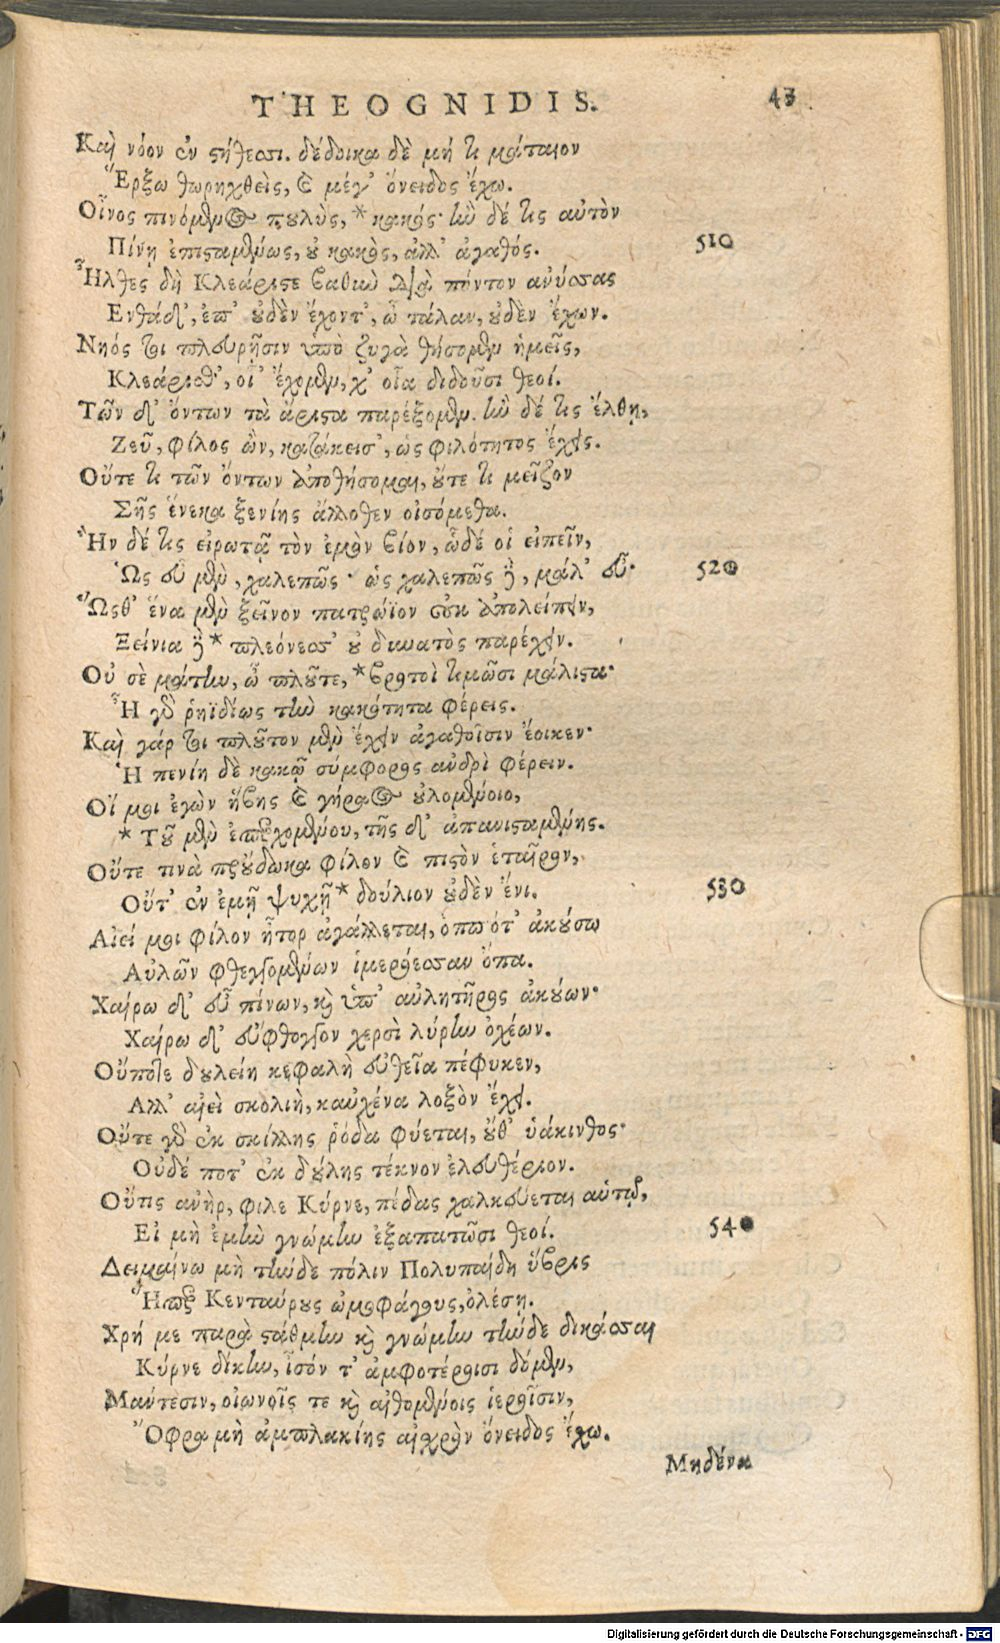 THEOGNIDIS. 43
Καὶ νόον ἐν στήθεσι. δέδοικα δὲ μή τι μάταιον
Ἔρξω θωρηχθεὶς, καὶ μέγ' ὄνειδος ἔχω.
Οἶνος πινόμενος πουλὺς, * κακός· ἢν δέ τις αὐτὸν
Πίνῃ ἐπισταμένως, οὐ κακὸς, ἀλλ' ἀγαθός. 510
Ἦλθες δὴ Κλεάριστε βαθὺν διὰ πόντον ἀνύσας
Ενθάδ', ἐπ' οὐδὲν ἔχοντ', ὦ τάλαν, οὐδὲν ἔχων.
Νηός τοι πλευρῇσιν ὑπὸ ζυγὰ θήσομεν ἡμεῖς,
Κλεάρισθ', οἷ' ἔχομεν, χ' οἷα διδοῦσι θεοί.
Τῶν δ' ὄντων τὰ ἄριστα παρέξομεν. ἢν δέ τις ἔλθῃ,
Ζεῦ, φίλος ὢν, κατάκεισ', ὡς φιλότητος ἔχεις.
Οὔτε τι τῶν ὄντων ἀποθήσομαι, οὔτε τι μεῖζον
Σῆς ἕνεκα ξενίης ἄλλοθεν οἰσόμεθα.
Ἢν δέ τις εἰρωτᾷ τὸν ἐμὸν βίον, ὧδέ οἱ εἰπεῖν,
Ὡς εὖ μὲν, χαλεπῶς· ὡς χαλεπῶς δὲ, μάλ' εὖ· 520
Ὥσθ' ἕνα μὲν ξεῖνον πατρώϊον οὐκ ἀπολείπειν,
Ξείνια δὲ * πλεόνεσσ' οὐ δυνατὸς παρέχειν.
Οὐ σὲ μάτην, ὦ πλοῦτε, * βροτοὶ τιμῶσι μάλιστα·
Ἦ γὰρ ῥηϊδίως τὴν κακότητα φέρεις.
Καὶ γάρ τοι πλοῦτον μὲν ἔχειν ἀγαθοῖσιν ἔοικεν·
Ἡ πενίη δὲ κακῷ σύμφορος ἀνδρὶ φέρειν.
Οἴ μοι ἐγὼν ἥβης καὶ γήραος οὐλομένοιο,
* Τοῦ μὲν ἐπερχομένου, τῆς δ' ἀπανισταμένης.
Οὔτε τινὰ προύδωκα φίλον καὶ πιστὸν ἑταῖρον,
Οὔτ' ἐν ἐμῇ ψυχῇ * δούλιον οὐδὲν ἔνι. 530
Αἰεί μοι φίλον ἦτορ ἀγάλλεται, ὁπωότ' ἀκούσω
Αὐλῶν φθεγγομένων ἱμερόεσσαν ὄπα.
Χαίρω δ' εὖ πίνων, καὶ ὑπ' αὐλητῆρος ἀκούων·
Χαίρω δ' εὔφθογγον χερσὶ λύρην ὀχέων.
Οὔποτε δουλείη κεφαλὴ εὐθεῖα πέφυκεν,
Αλλ' αἰεὶ σκολιὴ, καὐχένα λοξὸν ἔχει.
Οὔτε γὰρ ἐκ σκίλλης ῥόδα φύεται, οὔθ' ὑάκινθος·
Οὐδέ ποτ' ἐκ δούλης τέκνον ἐλευθέριον.
Οὔτις ἀνὴρ, φιλε Κύρνε, πέδας χαλκεύεται αὑτῷ,
Εἰ μὴ ἐμὴν γνώμην ἐξαπατῶσι θεοί. 540
Δειμαίνω μὴ τήνδε πόλιν Πολυπαίδη ὕβρις
Ἥπερ Κενταύρους ὠμοφάγους, ὀλέσῃ.
Χρή με παρὰ στάθμην καὶ γνώμην τήνδε δικάσσαι
Κύρνε δίκην, ἶσόν τ' ἀμφοτέροισι δόμεν,
Μάντεσιν, οἰωνοῖς τε καὶ αἰθομένοις ἱεροῖσιν,
Ὄφρα μὴ ἀμπλακίης αἰχρὸν ὄνειδος ἔχω.
Μηδένα
Digitalisierung gefördert durch die Deutsche Forschungsgemeinschaft - DFG